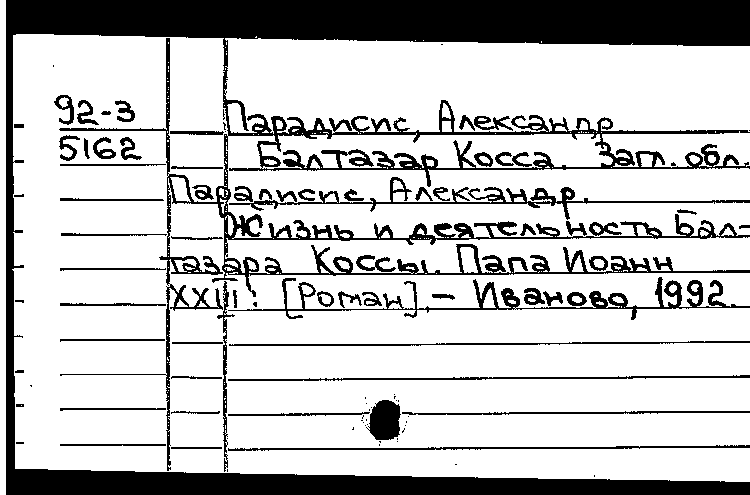 92-3 Парадисис, Александр.
5162 Балтазар Косса. Загл. обл.
Парадисис, Александр.
Жизнь и деятельность Бал-
тазара Коссы. Папа Иоанн
XXIII: [Роман]. – Иваново, 1992.